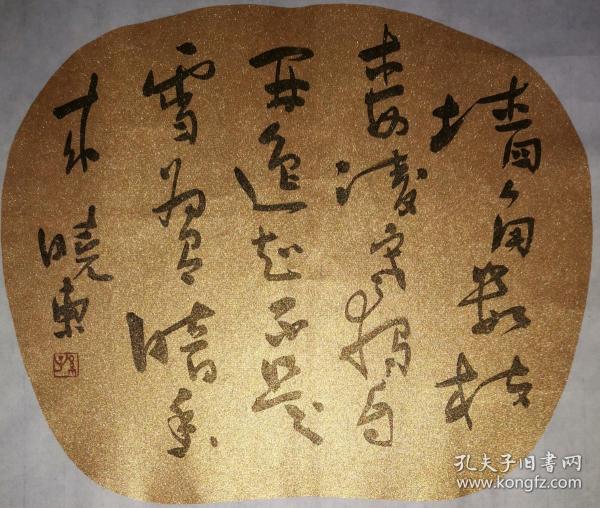 墙角数枝
梅凌寒独自
开遥知不是
雪为有暗香
来
曉東
孔夫子旧書网
www.kongfz.com